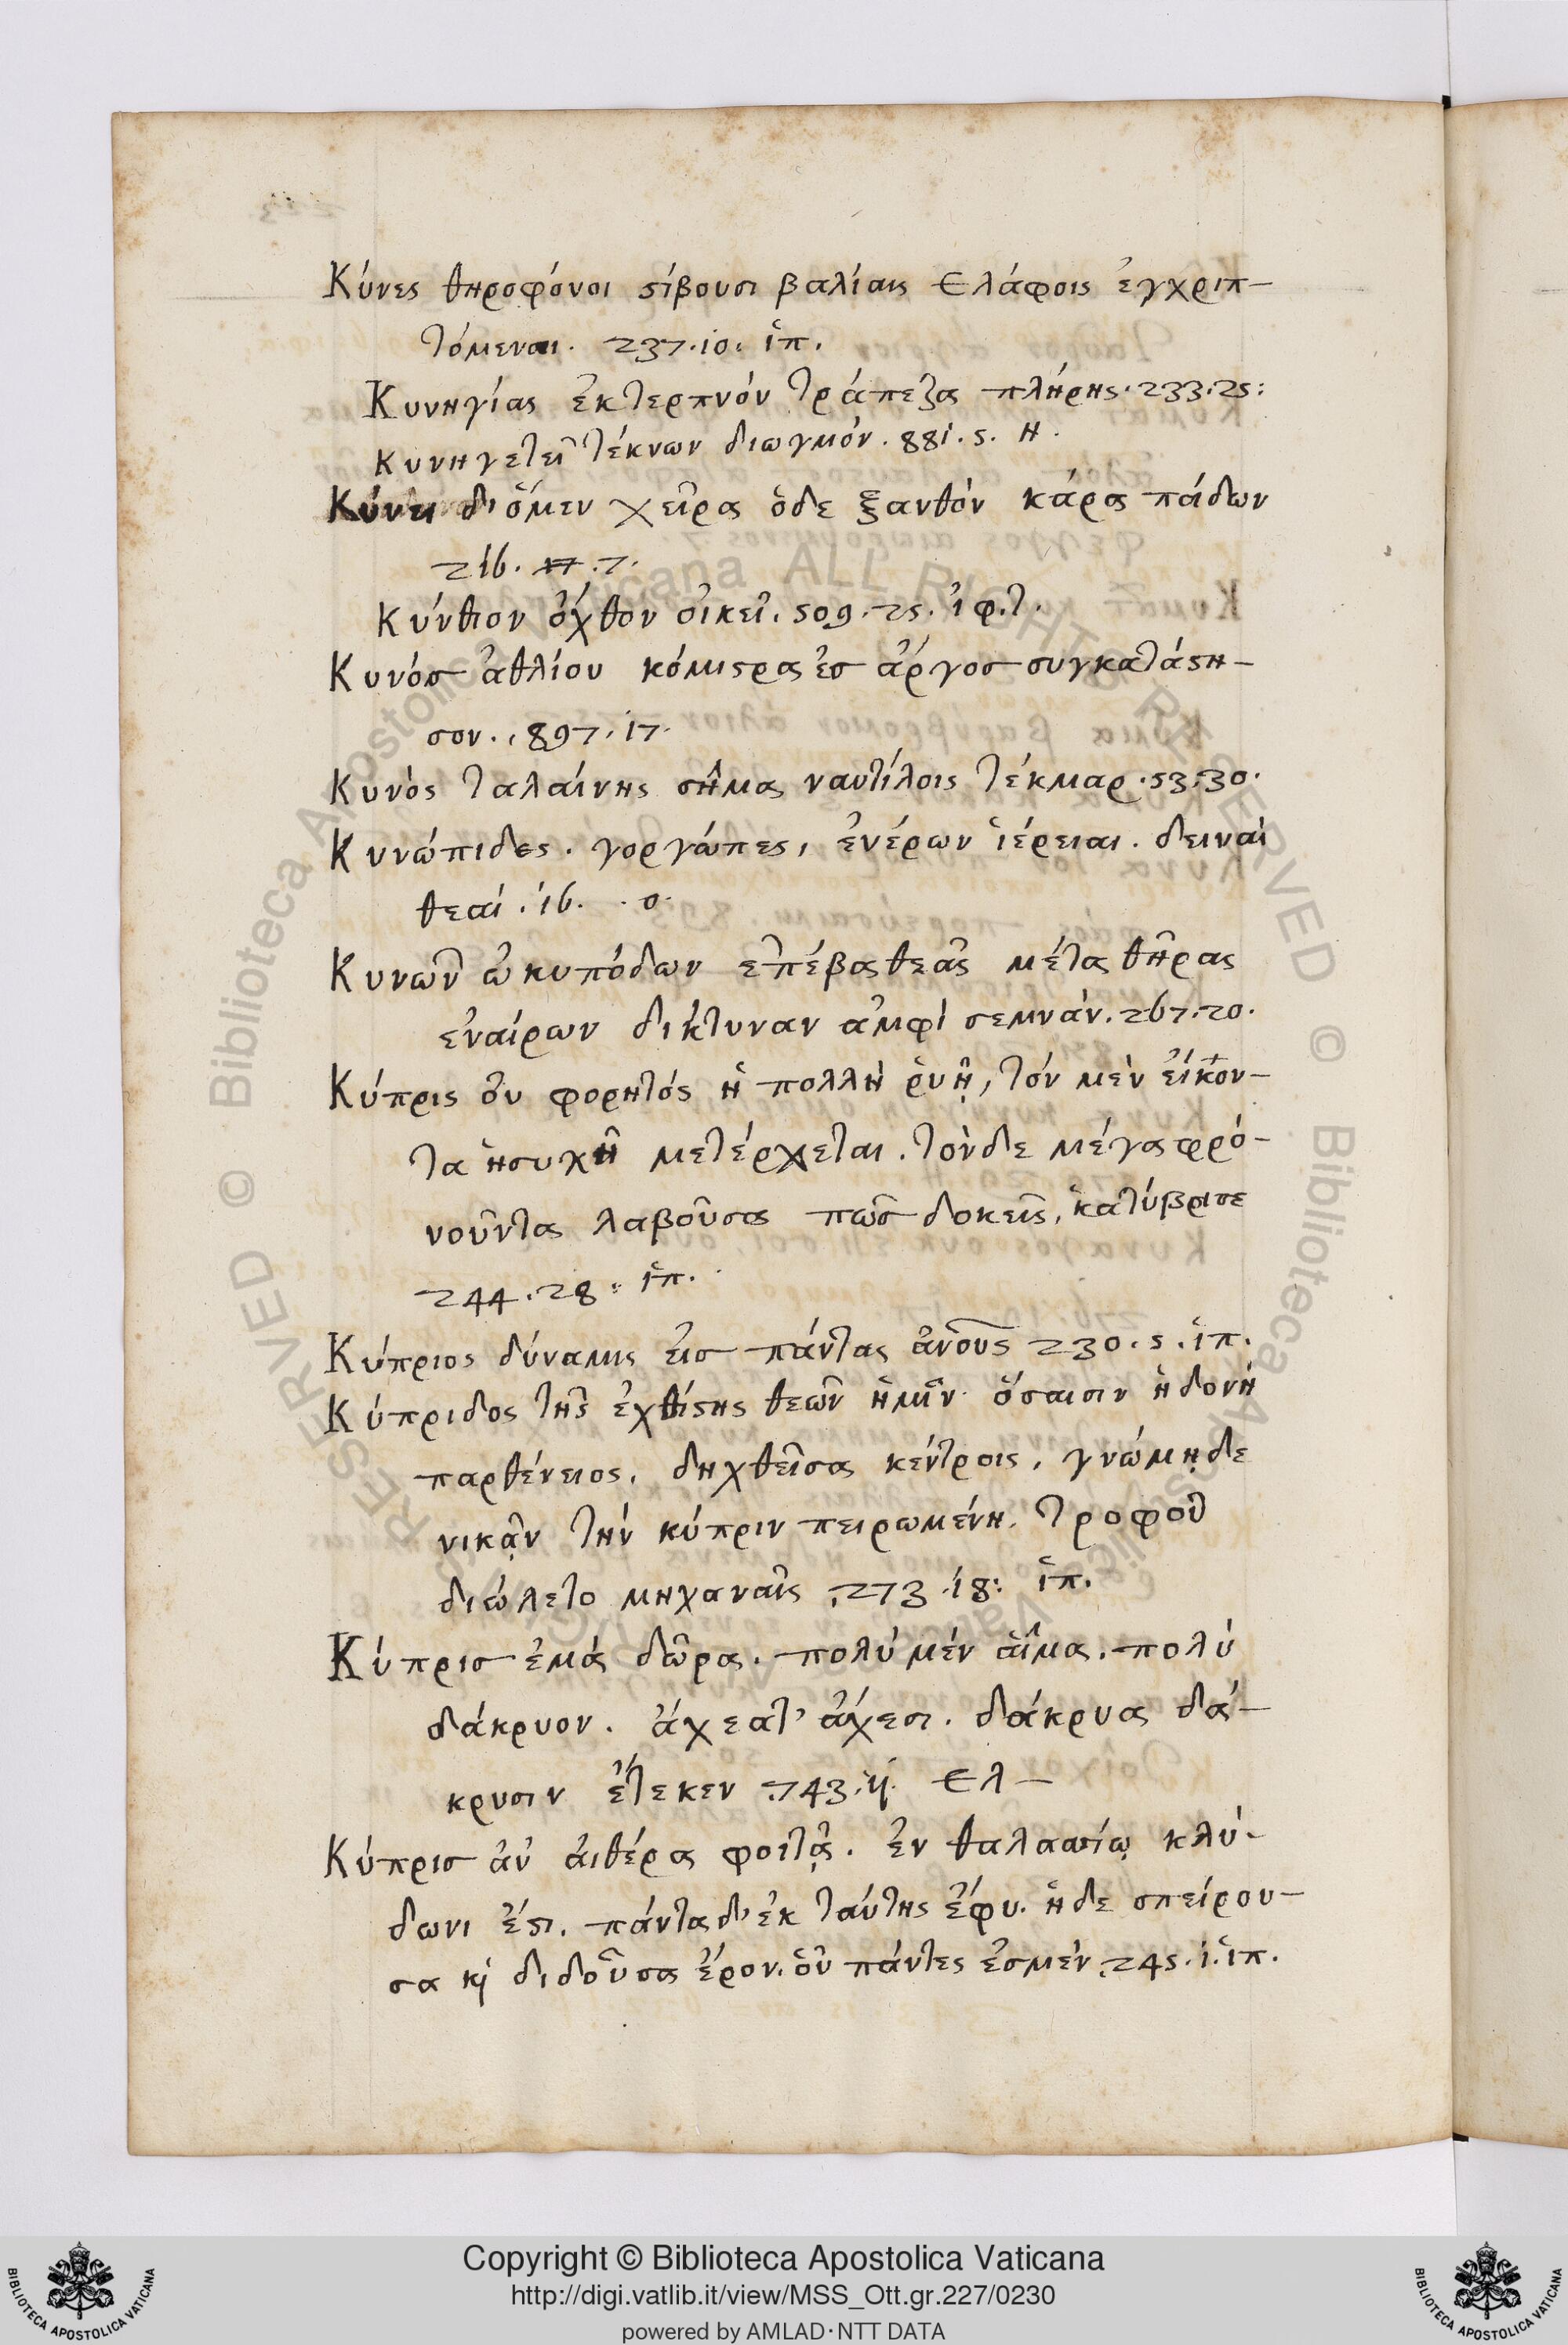 Κύνες θηροφόνοι ϛίβουσι βαλίαις Ελάφοις ἐγχριπ-
τόμεναι. 237.10. ἱπ.
Κυνηγίας ἐκτερπνόν τράπεζα πλήρης. 233.25:
κυνηγετεῖ τέκνων διωγμόν. 881. 5. H.
Κύνει διόμεν χεῖρας ὁδε ξανθόν κάρα πάιδων
216. 7.
Κύνθιον ὄχθον οἰκεῖ. 509. 25. ἰφ.τ.
Κυνόσ ἀθλίου κόμιϛρα ἐσ ἄργοσ συγκατάϛη-
σον. 897. 17.
Κυνὸς ταλαίνης σῆμα ναυτίλοις τέκμαρ. 53. 30.
Κυνώπιδες. γοργώπες, ἐνέρων ἱέρειαι. δειναὶ
θεαί. 16. . ο.
Κυνῶν ὠκυπόδων ἐπέβας θεᾶς μέτα θῆρας
ἐναίρων δικτυναν ἀμφὶ σεμνάν. 267. 20.
Κύπρις ὀυ φορητός ἡ πολλὴ ῥυῇ, τόν μὲν εἴκον-
τα ἡσυχῆ μετέρχεται. τὸνδε μέγα φρό-
νοῦντα λαβοῦσα πῶσ δοκεῖς, κατύβρισε
244. 28: ἱπ.
Κύπριος δύναμις εἰσ πάντας ἀνους 230. 5. ἱπ.
Κύπριδος τῆς ἐχθίϛης θεῶν ἡμῖν ὅσαισιν ἡδονή
παρθένειος, δηχθεῖσα κέντροις, γνώμῃδε
νικᾷν τήν κύπριν πειρωμένη. τροφοῦ
διώλετο μηχαναῖς 273. 18: ἱπ.
Κύπρισ ἐμά δῶρα. πολὺ μέν αἷμα. πολύ
δάκρυον. ἄχεατ' ἄχεσι. δάκρυα δά-
κρυσιν ἔτεκεν 743. 4. Ελ-
Κύπρισ ἀν ἀιθέρα φοιτᾷ. ἐν θαλασσίῳ κλύ-
δωνι ἔϛι. πάντα δ' ἐκ ταύτης ἔφυ. ἡδε σπείρου-
σα κὶ διδοῦσα ἔρον. ὁῦ πάντες ἐσμέν 245. 1. ἱπ.
Copyright © Biblioteca Apostolica Vaticana
http://digi.vatlib.it/view/MSS_Ott.gr.227/0230
powered by AMLAD·NTT DATA